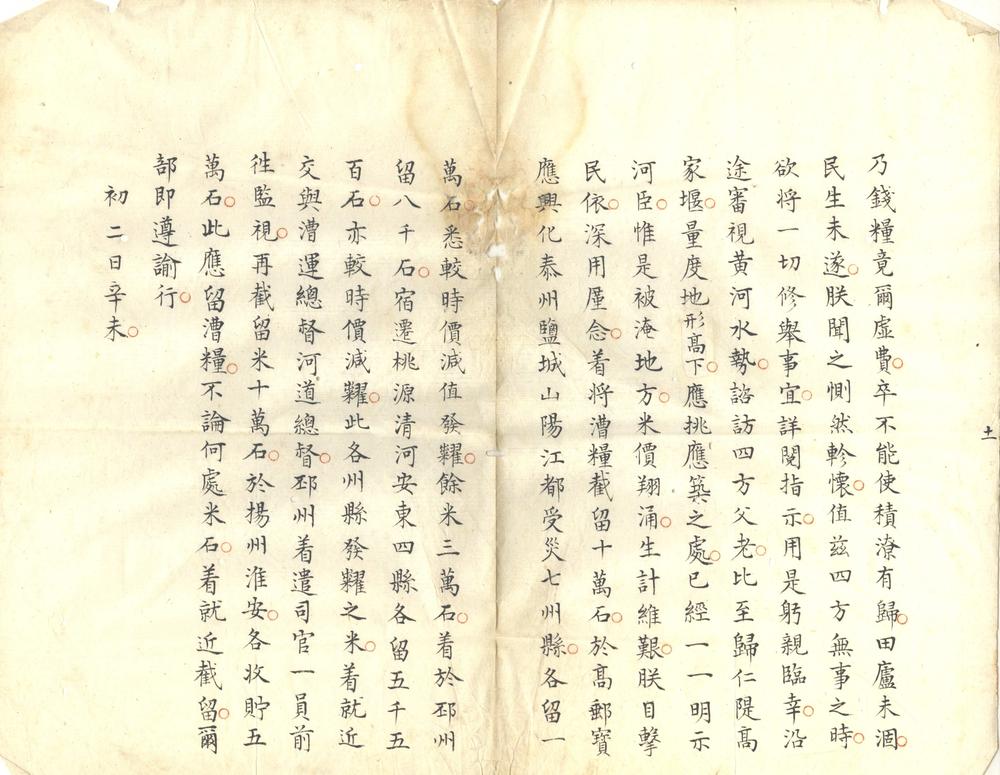 乃錢糧竟爾虛費卒不能使積潦有歸田廬未涸
民生未遂朕聞之惻然軫懷值茲四方無事之時
欲將一切修舉事宜詳閱指示用是躬親臨幸沿
途審視黃河水勢諮訪四方父老比至歸仁隄高
家堰量度地形高下應挑應築之處已經一一明示
河臣惟是被淹地方米價翔涌生計維艱朕目擊
民依深用厪念着將漕糧截留十萬石於高郵寶
應興化泰州鹽城山陽江都受災七州縣各留一
萬石悉較時價減值發糶餘米三萬石着於邳州
留八千石宿遷桃源清河安東四縣各留五千五
百石亦較時價減糶此各州縣發糶之米着就近
交與漕運總督河道總督邳州着遣司官一員前
徃監視再截留米十萬石於揚州淮安各收貯五
萬石此應留漕糧不論何處米石着就近截留爾
部即遵諭行
初二日辛未
土